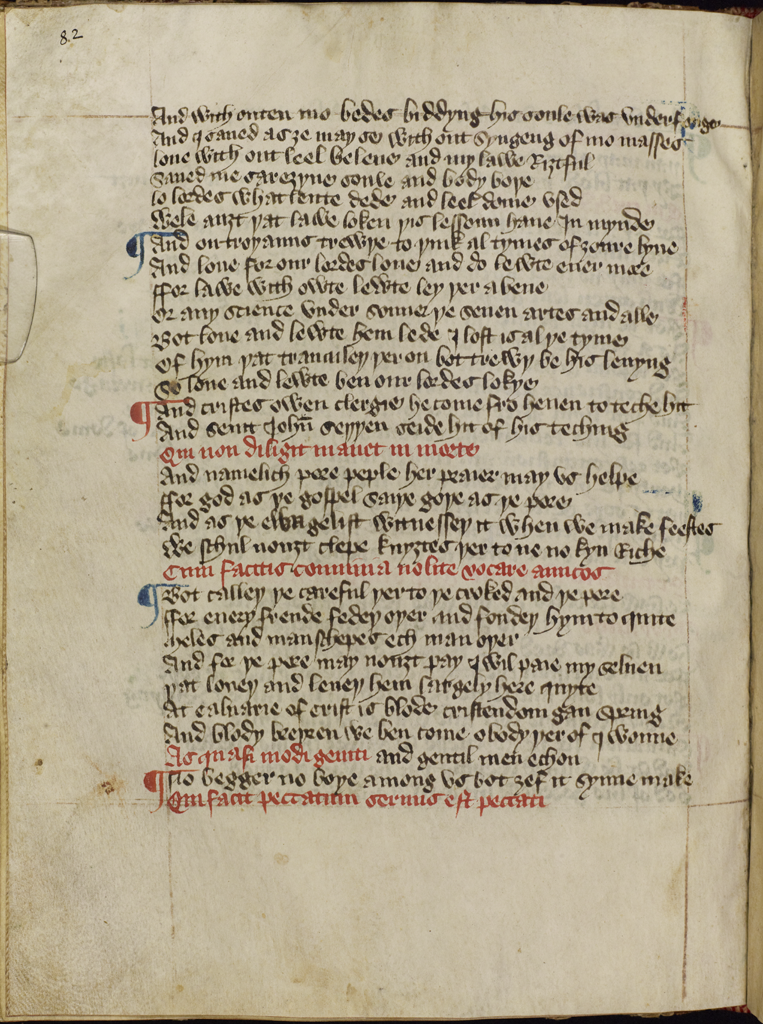 82
And with outen mo bedes biddyng his soule was underfonge
And I saued as ȝe may se with out syngeng of mo masses
loue with out leel beleue and my lawe Riȝtful
Saued me sareȝyne soule and body boþe
lo lordes what leute dede and leel dome vsed
Wele auȝt þat lawe loken þis lessoun haue In mynde
¶ And on troyanus trewþe to þink al tymes of ȝoure lyue
And loue for our lordes loue and do lewte euer more
ffor lawe with owte lewte ley þer a bene
Or any science vnder sonne þe seuen artes and alle
Bot loue and lewte hem lede I lost is al þe tyme
Of hym þat trauailey þer on bot trewþ be his lenyng
So loue and lewte ben our lordes lokys
¶ And cristes owen clergie he come fro heuen to teche hit
And sent John seþþen seide hit of his teching
Qui non diligit manet in morte
And namelich pore peple her praier may vs helpe
ffor god as þe gospel saiþe goþe as þe pore
And as þe ewangelist witnesseþ it when we make feestes
We schul nouȝt clepe knyȝtes þer to ne no kyn Riche
Cum facitis conuiuia nolite vocare amicos
¶ Bot calleþ þe careful þer to þe croked and þe pore
ffor euery frende fedeþ oþer and fondeþ hym to quite
Meles and manschepes ech man oþer
And for þe pore may nouȝt pay I wil paie my seluen
þat loueþ and leneþ hem largely here quyte
At caluarie of crist is blode cristendom gan spring
And blody breþren we ben come o body þer of I wonne
As quasi modi geniti and gentil men echon
¶ No begger no boye among vs bot ȝef it synne make
Qui facit peccatum seruus est peccati